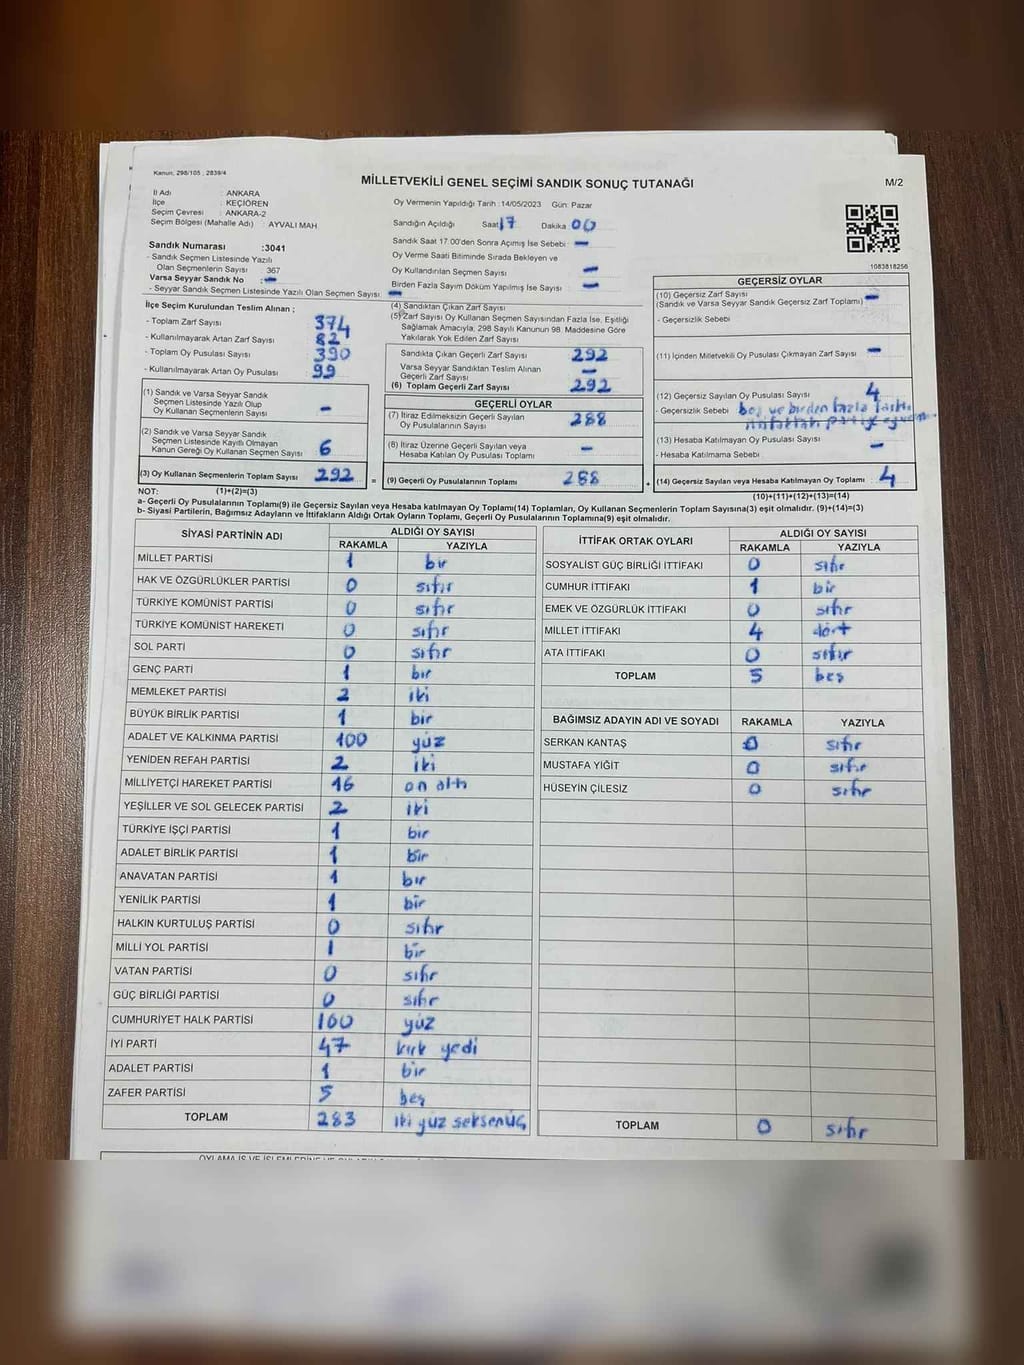 Kanun, 298/105 , 2839/4
MİLLETVEKİLİ GENEL SEÇİMİ SANDIK SONUÇ TUTANAĞI
M/2
İl Adı : ANKARA
İlçe : KEÇİÖREN
Seçim Çevresi : ANKARA-2
Seçim Bölgesi (Mahalle Adı) : AYVALI MAH.
Sandık Numarası :3041
- Sandık Seçmen Listesinde Yazılı
Olan Seçmenlerin Sayısı 367
Varsa Seyyar Sandık No : –
- Seyyar Sandık Seçmen Listesinde Yazılı Olan Seçmen Sayısı: –
Oy Vermenin Yapıldığı Tarih :14/05/2023 Gün: Pazar
Sandığın Açıldığı Saat 17 Dakika 00
Sandık Saat 17:00'den Sonra Açımış İse Sebebi : –
Oy Verme Saati Bitiminde Sırada Bekleyen ve
Oy Kullandırılan Seçmen Sayısı : –
Birden Fazla Sayım Döküm Yapılmış İse Sayısı : –
1083818256
İlçe Seçim Kurulundan Teslim Alınan ;
- Toplam Zarf Sayısı : 374
- Kullanılmayarak Artan Zarf Sayısı : 82
- Toplam Oy Pusulası Sayısı : 390
- Kullanılmayarak Artan Oy Pusulası : 99
(1) Sandık ve Varsa Seyyar Sandık
Seçmen Listesinde Yazılı Olup
Oy Kullanan Seçmenlerin Sayısı : –
(2) Sandık ve Varsa Seyyar Sandık
Seçmen Listesinde Kayıtlı Olmayan
Kanun Gereği Oy Kullanan Seçmen Sayısı : 6
(3) Oy Kullanan Seçmenlerin Toplam Sayısı : 292
(4) Sandıktan Çıkan Zarf Sayısı :
(5) Zarf Sayısı Oy Kullanan Seçmen Sayısından Fazla İse, Eşitliği
Sağlamak Amacıyla, 298 Sayılı Kanunun 98. Maddesine Göre
Yakılarak Yok Edilen Zarf Sayısı :
Sandıkta Çıkan Geçerli Zarf Sayısı : 292
Varsa Seyyar Sandıktan Teslim Alınan
Geçerli Zarf Sayısı : –
(6) Toplam Geçerli Zarf Sayısı : 292
GEÇERLİ OYLAR
(7) İtiraz Edilmeksizin Geçerli Sayılan
Oy Pusulası Toplamı : 288
(8) İtiraz Üzerine Geçerli Sayılan veya
Hesaba Katılan Oy Pusulası Toplamı : –
= (9) Geçerli Oy Pusulalarının Toplamı : 288
GEÇERSİZ OYLAR
(10) Geçersiz Zarf Sayısı
(Sandık ve Varsa Seyyar Sandık Geçersiz Zarf Toplamı) : –
- Geçersizlik Sebebi :
(11) İçinden Milletvekili Oy Pusulası Çıkmayan Zarf Sayısı : –
(12) Geçersiz Sayılan Oy Pusulası Sayısı : 4
- Geçersizlik Sebebi : boş ve birden fazla
(13) Hesaba Katılmayan Oy Pusulası Sayısı : –
- Hesaba Katılmama Sebebi :
+ (14) Geçersiz Sayılan veya Hesaba Katılmayan Oy Toplamı : 4
NOT: (1)+(2)=(3)
(10)+(11)+(12)+(13)=(14)
a- Geçerli Oy Pusulalarının Toplamı(9) ile Geçersiz Sayılan veya Hesaba katılmayan Oy Toplamı(14) Toplamları, Oy Kullanan Seçmenlerin Toplam Sayısına(3) eşit olmalıdır. (9)+(14)=(3)
b- Siyasi Partilerin, Bağımsız Adayların ve İttifakların Aldığı Ortak Oyların Toplamı, Geçerli Oy Pusulalarının Toplamına(9) eşit olmalıdır.
SİYASİ PARTİNİN ADI ALDIĞI OY SAYISI
RAKAMLA YAZIYLA
MİLLET PARTİSİ 1 bir
HAK VE ÖZGÜRLÜKLER PARTİSİ 0 sıfır
TÜRKİYE KOMÜNİST PARTİSİ 0 sıfır
TÜRKİYE KOMÜNİST HAREKETİ 0 sıfır
SOL PARTİ 0 sıfır
GENÇ PARTİ 1 bir
MEMLEKET PARTİSİ 2 iki
BÜYÜK BİRLİK PARTİSİ 1 bir
ADALET VE KALKINMA PARTİSİ 100 yüz
YENİDEN REFAH PARTİSİ 2 iki
MİLLİYETÇİ HAREKET PARTİSİ 16 on altı
YEŞİLLER VE SOL GELECEK PARTİSİ 2 iki
TÜRKİYE İŞÇİ PARTİSİ 1 bir
ADALET BİRLİK PARTİSİ 1 bir
ANAVATAN PARTİSİ 1 bir
YENİLİK PARTİSİ 1 bir
HALKIN KURTULUŞ PARTİSİ 0 sıfır
MİLLİ YOL PARTİSİ 1 bir
VATAN PARTİSİ 0 sıfır
GÜÇ BİRLİĞİ PARTİSİ 0 sıfır
CUMHURİYET HALK PARTİSİ 100 yüz
İYİ PARTİ 47 kırk yedi
ADALET PARTİSİ 1 bir
ZAFER PARTİSİ 5 beş
TOPLAM 283 iki yüz seksenüç
İTTİFAK ORTAK OYLARI ALDIĞI OY SAYISI
RAKAMLA YAZIYLA
SOSYALİST GÜÇ BİRLİĞİ İTTİFAKI 0 sıfır
CUMHUR İTTİFAKI 1 bir
EMEK VE ÖZGÜRLÜK İTTİFAKI 0 sıfır
MİLLET İTTİFAKI 4 dört
ATA İTTİFAKI 0 sıfır
TOPLAM 5 beş
BAĞIMSIZ ADAYIN ADI VE SOYADI RAKAMLA YAZIYLA
SERKAN KANTAŞ 0 sıfır
MUSTAFA YİĞİT 0 sıfır
HÜSEYİN ÇİLESİZ 0 sıfır
TOPLAM 0 sıfır